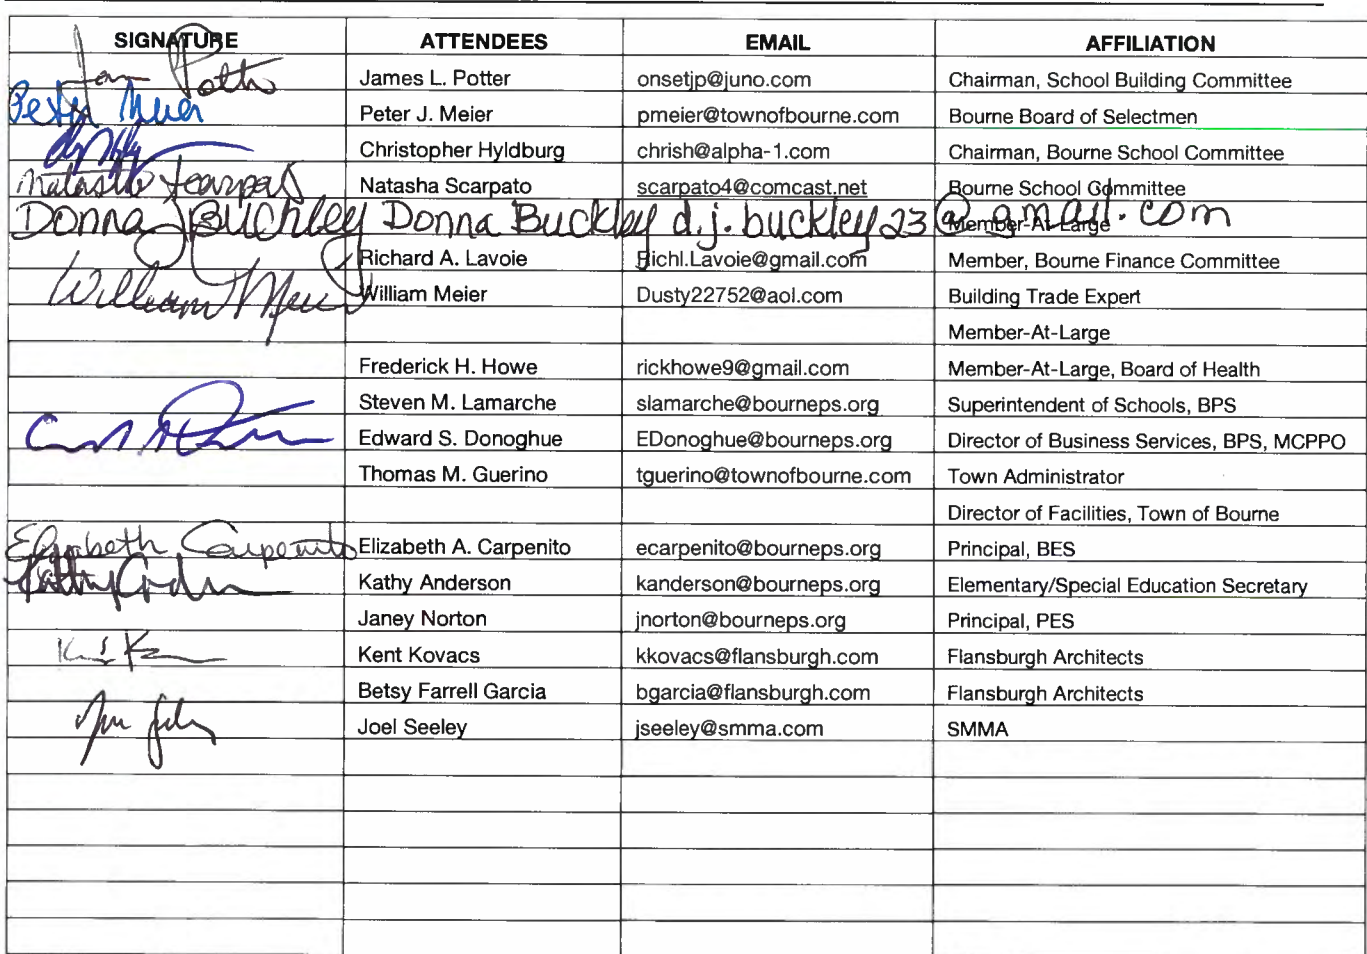 SIGNATURE ATTENDEES EMAIL AFFILIATION
James L. Potter onsetjp@juno.com Chairman, School Building Committee
Peter Meier Peter J. Meier pmeier@townofbourne.com Bourne Board of Selectmen
Christopher Hyldburg chrish@alpha-1.com Chairman, Bourne School Committee
Natasha Scarpato Natasha Scarpato scarpato4@comcast.net Bourne School Committee
Donna J Buckley Donna Buckley d.j.buckley23@gmail.com Member-At-Large
Richard A. Lavoie Richl.Lavoie@gmail.com Member, Bourne Finance Committee
William Meier William Meier Dusty22752@aol.com Building Trade Expert
Member-At-Large
Frederick H. Howe rickhowe9@gmail.com Member-At-Large, Board of Health
Steven M. Lamarche slamarche@bourneps.org Superintendent of Schools, BPS
Edward S. Donoghue EDonoghue@bourneps.org Director of Business Services, BPS, MCPPO
Thomas M. Guerino tguerino@townofbourne.com Town Administrator
Director of Facilities, Town of Bourne
Elizabeth Carpenito Elizabeth A. Carpenito ecarpenito@bourneps.org Principal, BES
Kathy Anderson kanderson@bourneps.org Elementary/Special Education Secretary
Janey Norton jnorton@bourneps.org Principal, PES
Kent Kovacs kkovacs@flansburgh.com Flansburgh Architects
Betsy Farrell Garcia bgarcia@flansburgh.com Flansburgh Architects
Joel Seeley jseeley@smma.com SMMA